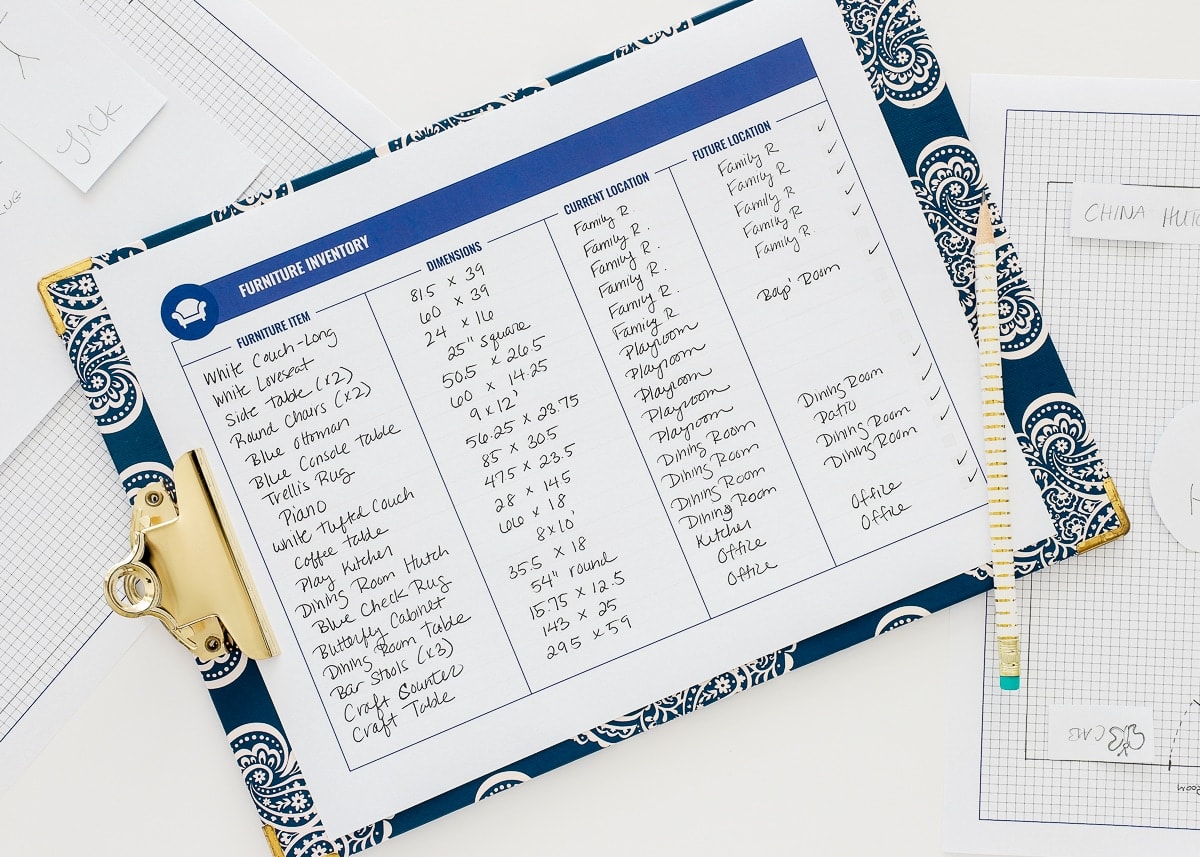 JACK
RUG
CHINA HUTCH
FURNITURE INVENTORY
FURNITURE ITEM DIMENSIONS CURRENT LOCATION FUTURE LOCATION
White Couch-Long 81.5 x 39 Family R. Family R ✓
White Loveseat 60 x 39 Family R. Family R ✓
Side Table (x2) 24 x 16 Family R. Family R ✓
Round Chairs (x2) 25" square Family R. Family R ✓
Blue Ottoman 50.5 x 26.5 Family R. Family R. ✓
Blue Console Table 60 x 14.25 Family R
Trellis Rug 9x12' Playroom Boys' Room ✓
Piano 56.25 x 23.75 Playroom
White Tufted Couch 85 x 30.5 Playroom
Coffee Table 47.5 x 23.5 Playroom
Play Kitchen 28 x 14.5 Playroom
Dining Room Hutch 66 x 18 Dining Room Dining Room ✓
Blue Check Rug 8x10' Dining Room Patio ✓
Butterfly Cabinet 35.5 x 18 Dining Room Dining Room ✓
Dining Room Table 54" round Dining Room Dining Room ✓
Bar Stools (x3) 15.75 x 12.5 Kitchen
Craft Counter 143 x 25 Office Office ✓
Craft Table 29.5 x 59 Office Office ✓